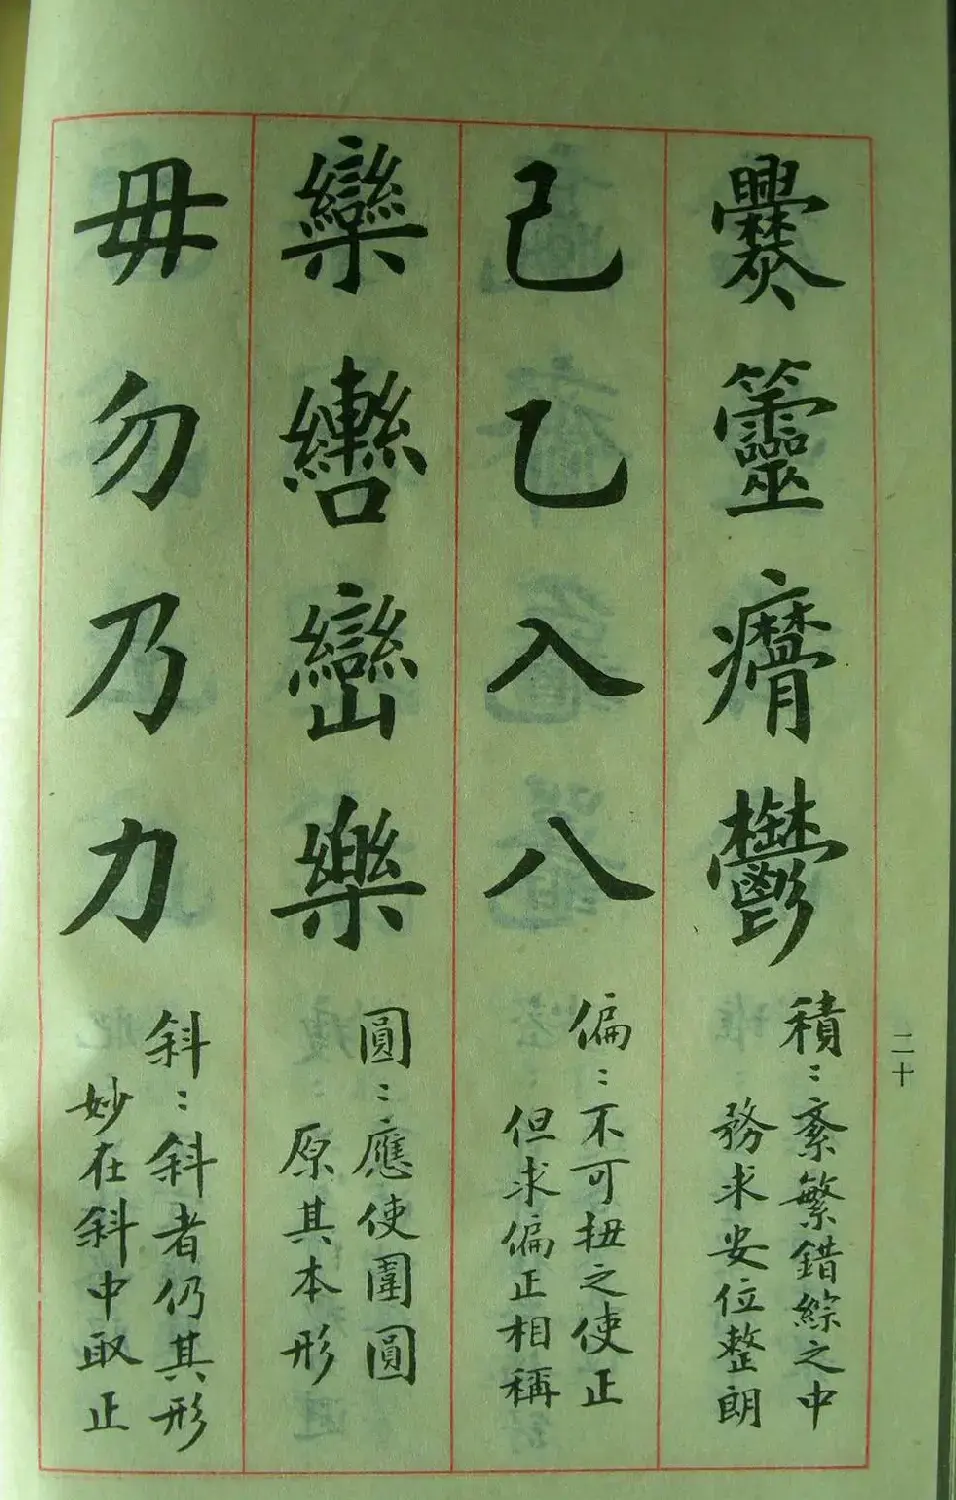 爨 鬱
積：紊繁錯綜之中
務求安位整朗
己乙入八
偏：不可扭之使正
但求偏正相稱
欒轡巒樂
圓：應使圍圓
原其本形
毋勿乃力
斜：斜者仍其形
妙在斜中取正
二十